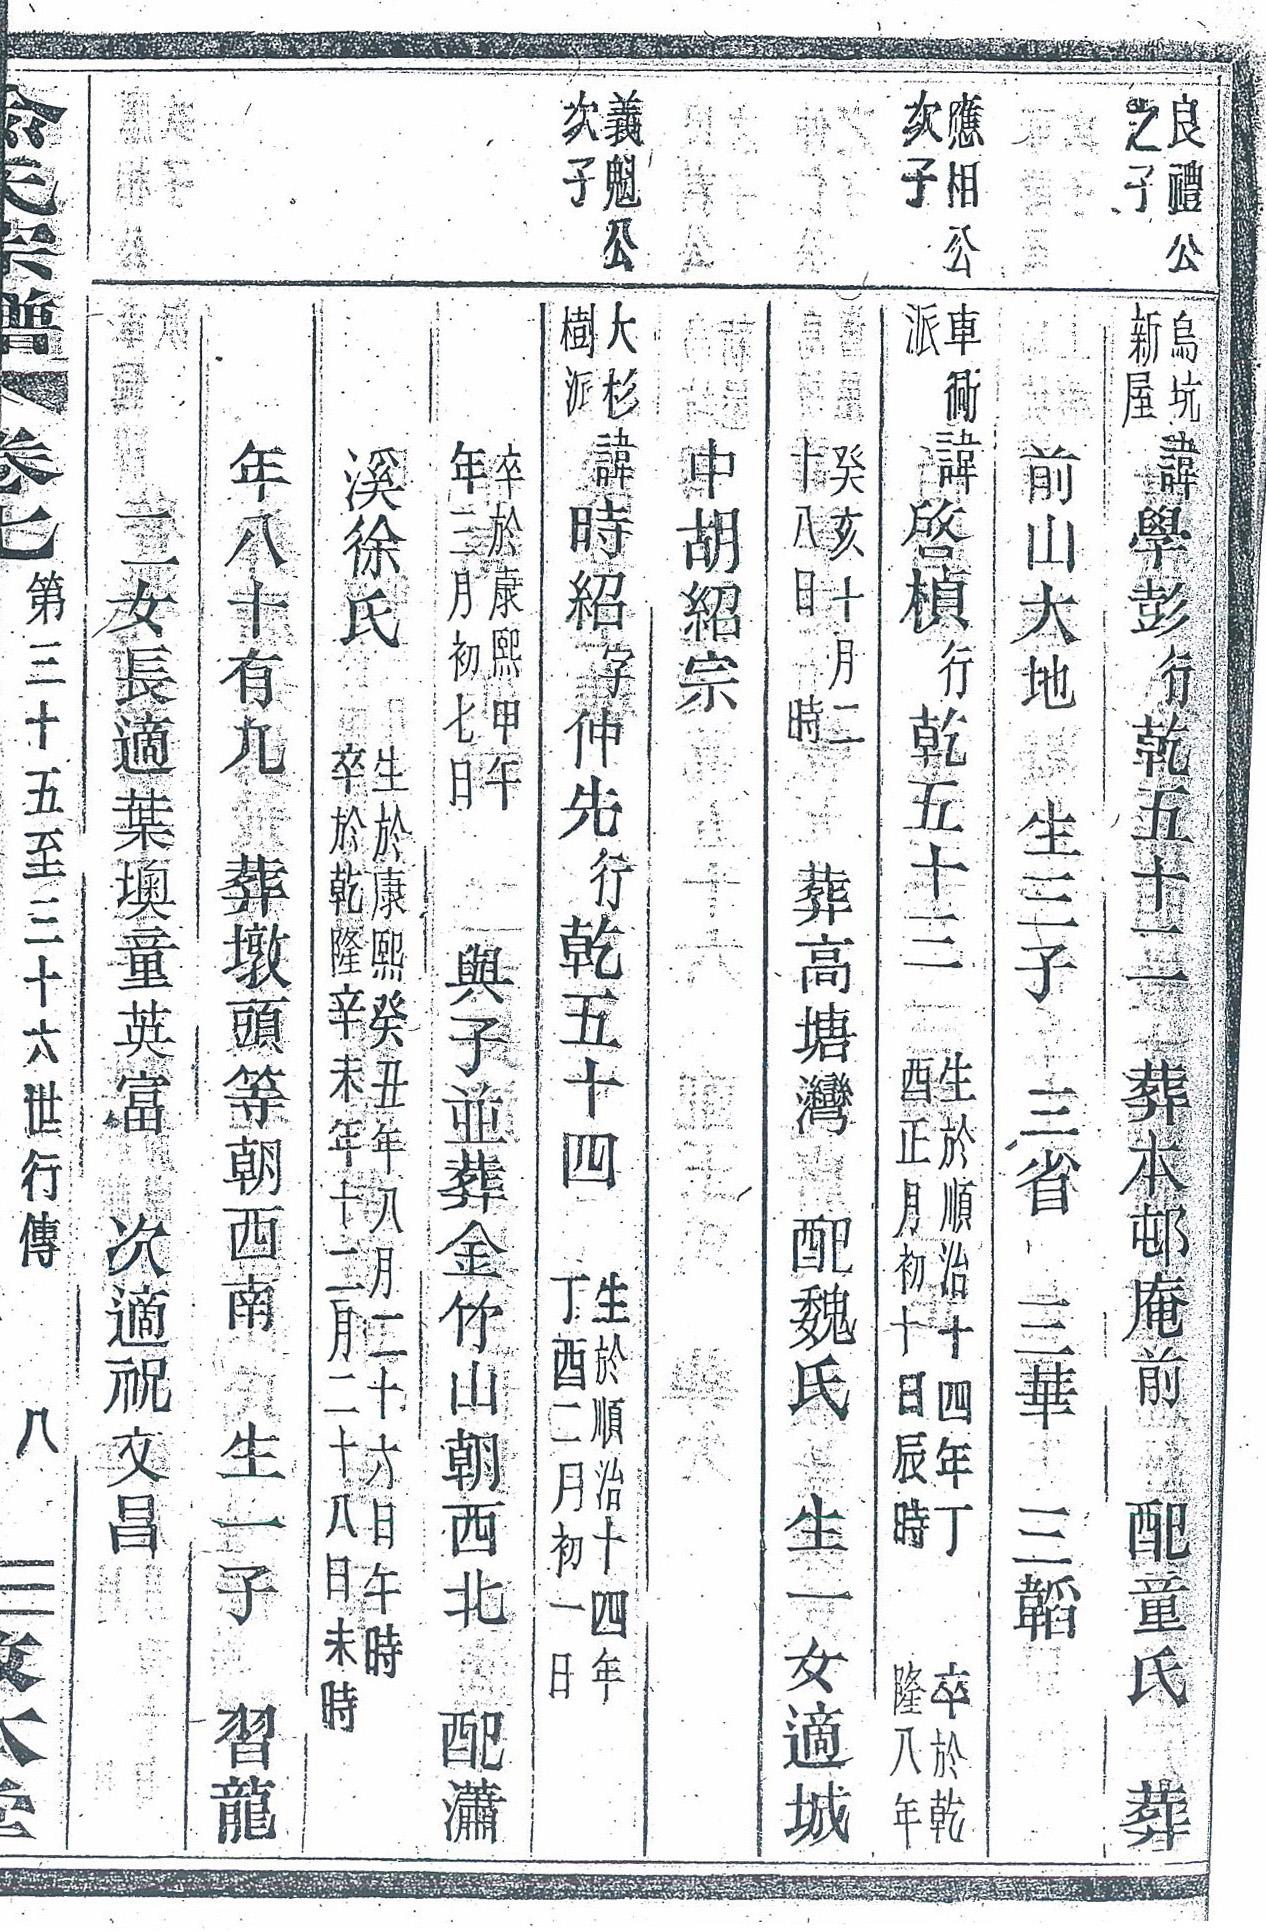 良禮公
之子
烏坑
新屋
諱學彭行乾五十二 葬本邨庵前 配童氏 葬
前山大地 生三子 三省 三華 三韜
應相公
次子
車衕
派
諱啓楨行乾五十三
生於順治十四年丁
酉正月初十日辰時
卒於乾
隆八年
癸亥十月二
十八日 時
葬高塘灣 配魏氏 生一女適城
中胡紹宗
義魁公
次子
大杉
樹派
諱時紹字仲先行乾五十四
生於順治十四年
丁酉二月初一日
卒於康熙甲午
年三月初七日
與子並葬金竹山朝西北 配瀟
溪徐氏
生於康熙癸丑年八月二十六日午時
卒於乾隆辛未年十二月二十八日未時
年八十有九 葬墩頭等朝西南 生一子 習龍
二女長適葉墺童英富 次適祝文昌
氏宗譜 卷七 第三十五至三十六世行傳 八